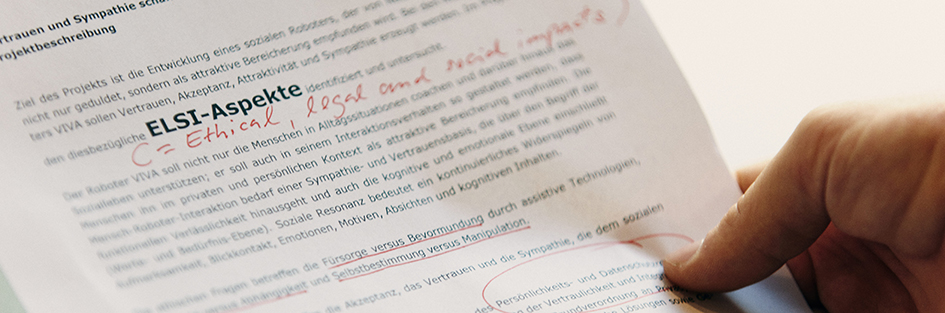 rtrauen und Sympathie sch
rojektbeschreibung
Ziel des Projekts ist die Entwicklung eines sozialen Roboters, der von
nicht nur geduldet, sondern als attraktive Bereicherung empfunden wird. Bei den
ters VIVA sollen Vertrauen, Akzeptanz, Attraktivität und Sympathie erzeugt werden. Im
den diesbezügliche ELSI-Aspekte identifiziert und untersucht.
(= Ethical, legal and social impacts)
Der Roboter VIVA soll nicht nur die Menschen in Alltagssituationen coachen und darüber hinaus das
Sozialleben unterstützen; er soll auch in seinem Interaktionsverhalten so gestaltet werden, dass
Menschen ihn im privaten und persönlichen Kontext als attraktive Bereicherung empfinden. Die
Mensch-Roboter-Interaktion bedarf einer Sympathie- und Vertrauensbasis, die über den Begriff der
funktionellen Verlässlichkeit hinausgeht und auch die kognitive und emotionale Ebene einschließt
(Werte- und Bedürfnis-Ebene). Soziale Resonanz bedeutet ein kontinuierliches Widerspiegeln von
Aufmerksamkeit, Blickkontakt, Emotionen, Motiven, Absichten und kognitiven Inhalten.
Fragen betreffen die Fürsorge versus Bevormundung durch assistive Technologien,
versus Abhängigkeit und Selbstbestimmung versus Manipulation.
die Akzeptanz, das Vertrauen und die Sympathie, die dem sozialen
des Persönlichkeits- und Datenschutz
ng der Vertraulichkeit und Integr
Lösungen sowie